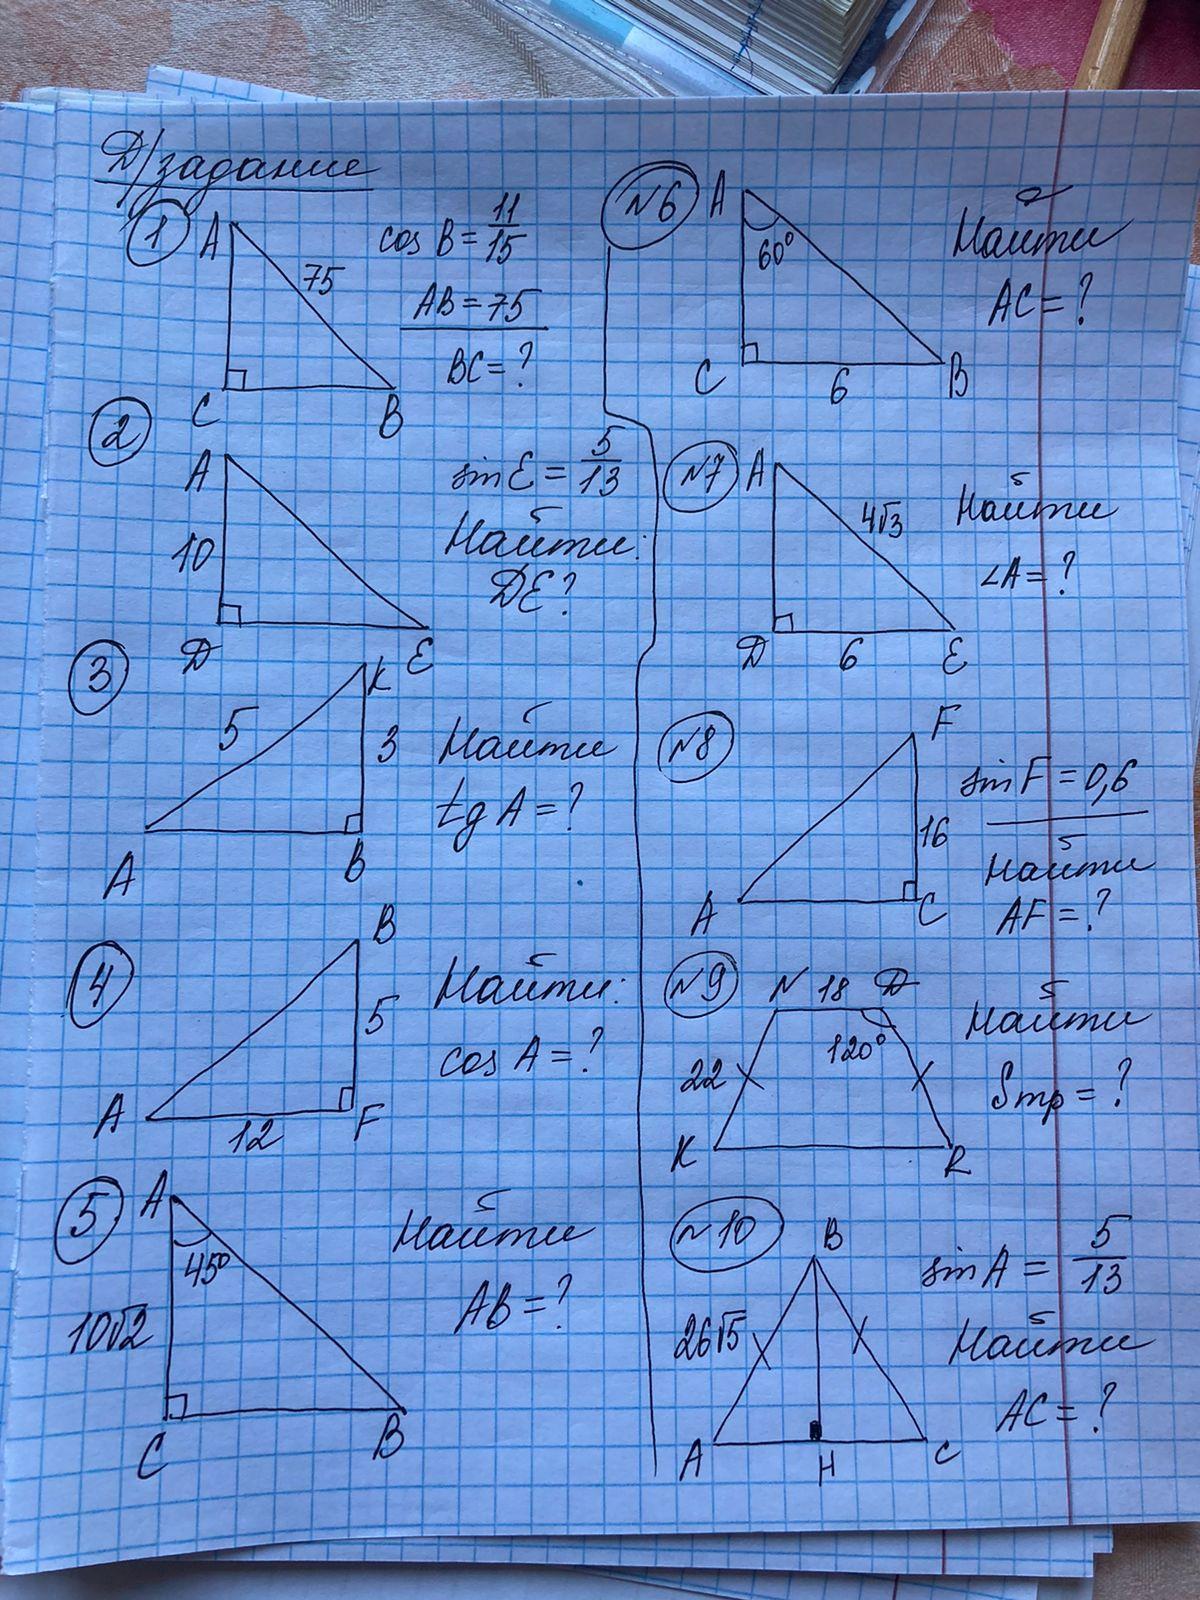 Д/задание
1
A
75
C
B
cos B = 11/15
AB = 75
BC = ?
2
A
10
D
E
sin E = 5/13
Найти:
DE?
3
K
5
3
A
B
Найти
tg A = ?
4
B
5
A
12
F
Найти:
cos A = ?
5
A
45°
10√2
C
B
Найти
AB = ?
№6
A
60°
C
6
B
Найти
AC = ?
№7
A
4√3
D
6
E
Найти
∠A = ?
№8
F
16
A
C
sin F = 0,6
Найти
AF = ?
№9
N 18 D
120°
22
K
R
Найти
Sтр = ?
№10
B
26√5
A
H
C
sin A = 5/13
Найти
AC = ?